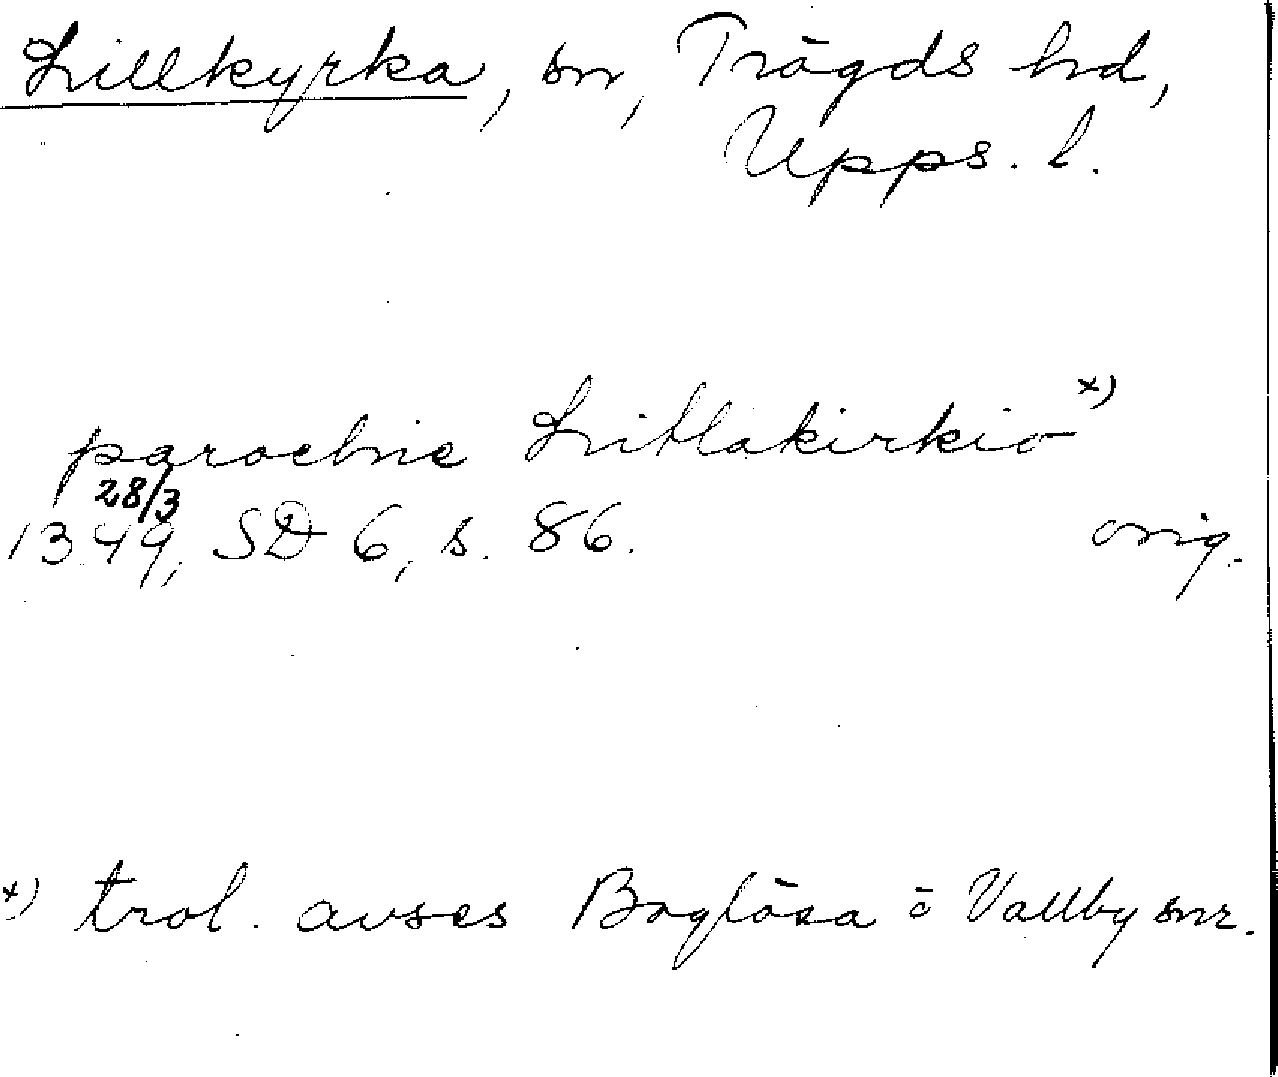 Lillkyrka, sn, Trögds hd,
Upps. l.
parochie Litlakirkio x)
28/3
1349, SD 6, s. 86. orig.
x) trol. avses Boglösa o Vallby snr.